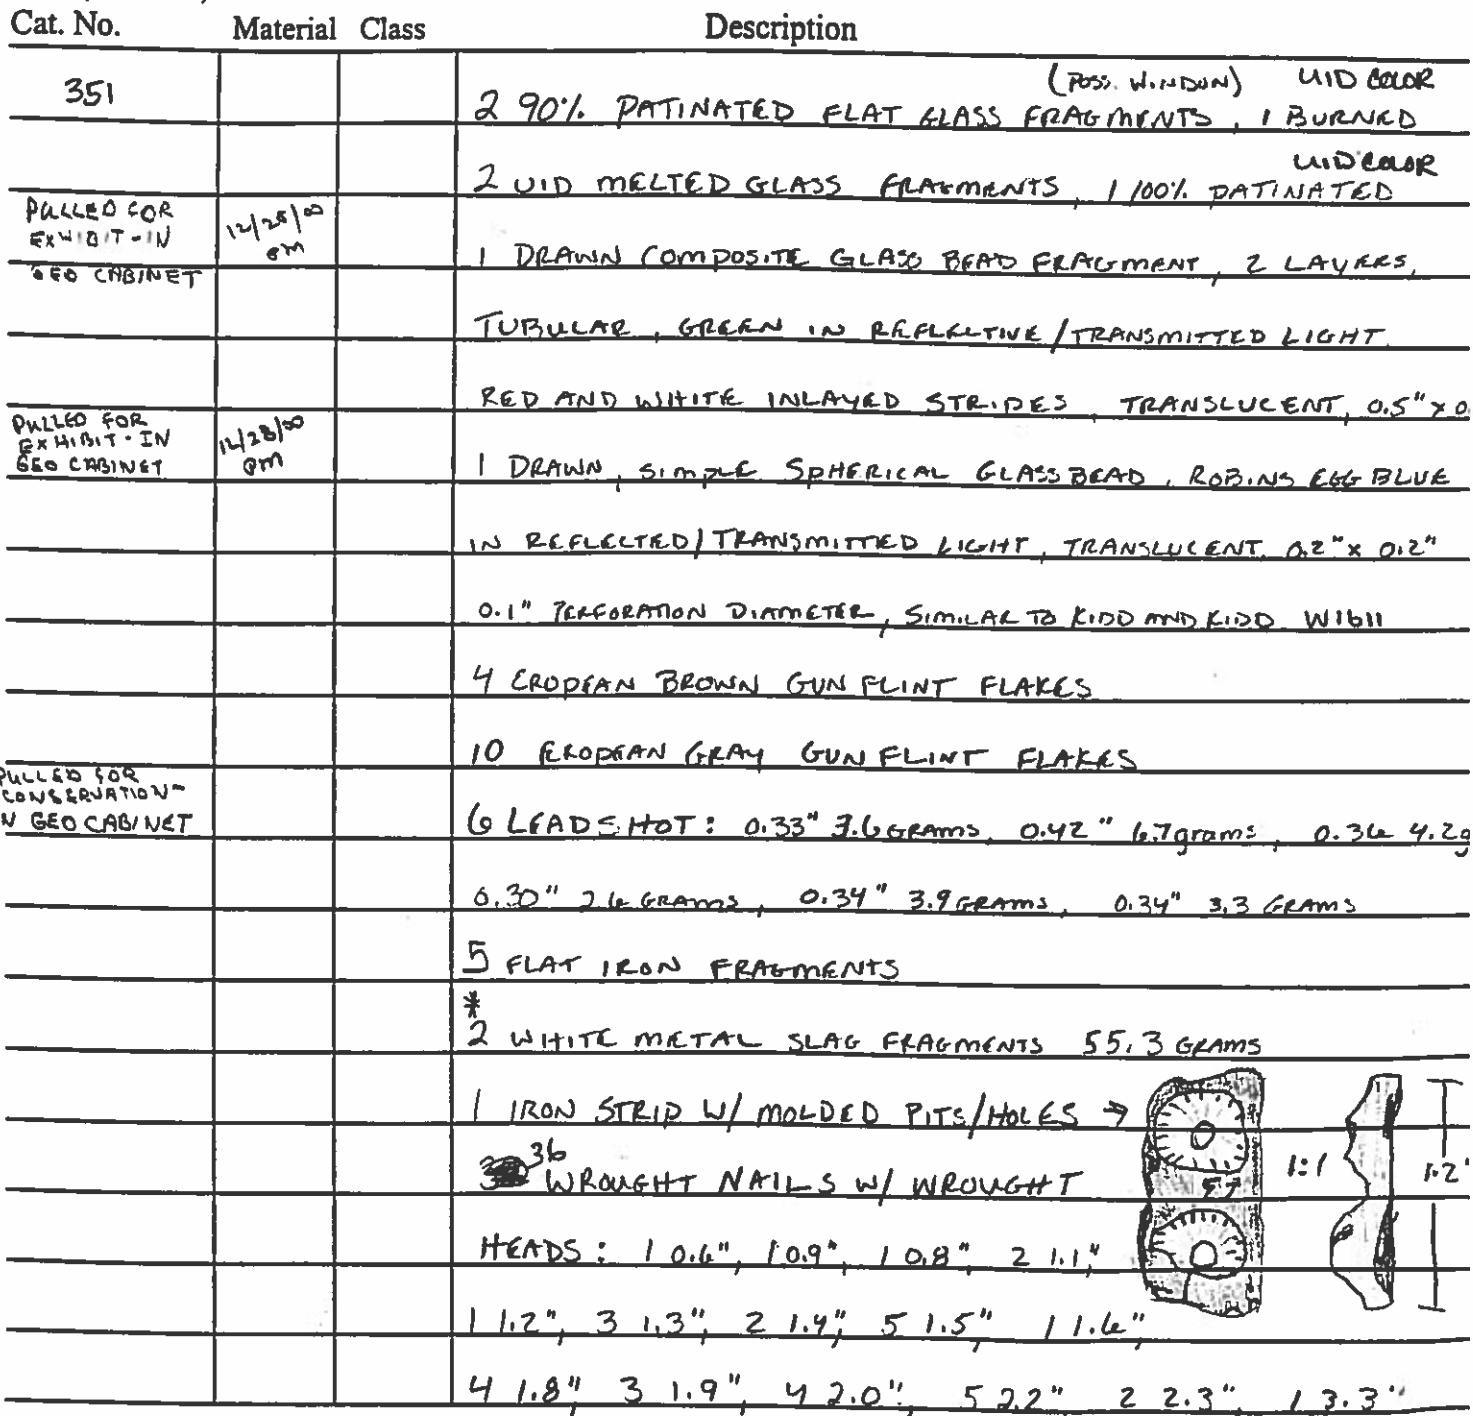 Cat. No. Material Class Description
(POSS. WINDOW) UID COLOR
351 2 90% PATINATED FLAT GLASS FRAGMENTS, 1 BURNED
UID COLOR
2 UID MELTED GLASS FRAGMENTS, 1 100% PATINATED
PULLED FOR
EXHIBIT - IN
GEO CABINET
12/28/00
1 DRAWN COMPOSITE GLASS BEAD FRAGMENT, 2 LAYERS,
TUBULAR, GREEN IN REFLECTIVE/TRANSMITTED LIGHT.
RED AND WHITE INLAYED STRIPES, TRANSLUCENT, 0.5" x 0.
PULLED FOR
EXHIBIT - IN
GEO CABINET
12/28/00
1 DRAWN, SIMPLE SPHERICAL GLASS BEAD, ROBINS EGG BLUE
IN REFLECTED/TRANSMITTED LIGHT, TRANSLUCENT. 0.2" x 0.2"
0.1" PERFORATION DIAMETER, SIMILAR TO KIDD AND KIDD W1b11
4 EROPEAN BROWN GUN FLINT FLAKES
10 EROPEAN GRAY GUN FLINT FLAKES
PULLED FOR
CONSERVATION-
N GEO CABINET
6 LEAD SHOT: 0.33" 3.6 GRAMS, 0.42" 6.7 grams, 0.36 4.2g
0.30" 2.6 GRAMS, 0.34" 3.9 GRAMS, 0.34" 3.3 GRAMS
5 FLAT IRON FRAGMENTS
*
2 WHITE METAL SLAG FRAGMENTS 55.3 GRAMS
1 IRON STRIP W/ MOLDED PITS/HOLES →
36 WROUGHT NAILS W/ WROUGHT
1:1 1.2"
HEADS: 1 0.6", 1 0.9", 1 0.8", 2 1.1"
1 1.2", 3 1.3", 2 1.4", 5 1.5" 1 1.6",
4 1.8", 3 1.9", 4 2.0", 5 2.2" 2 2.3", 1 3.3"